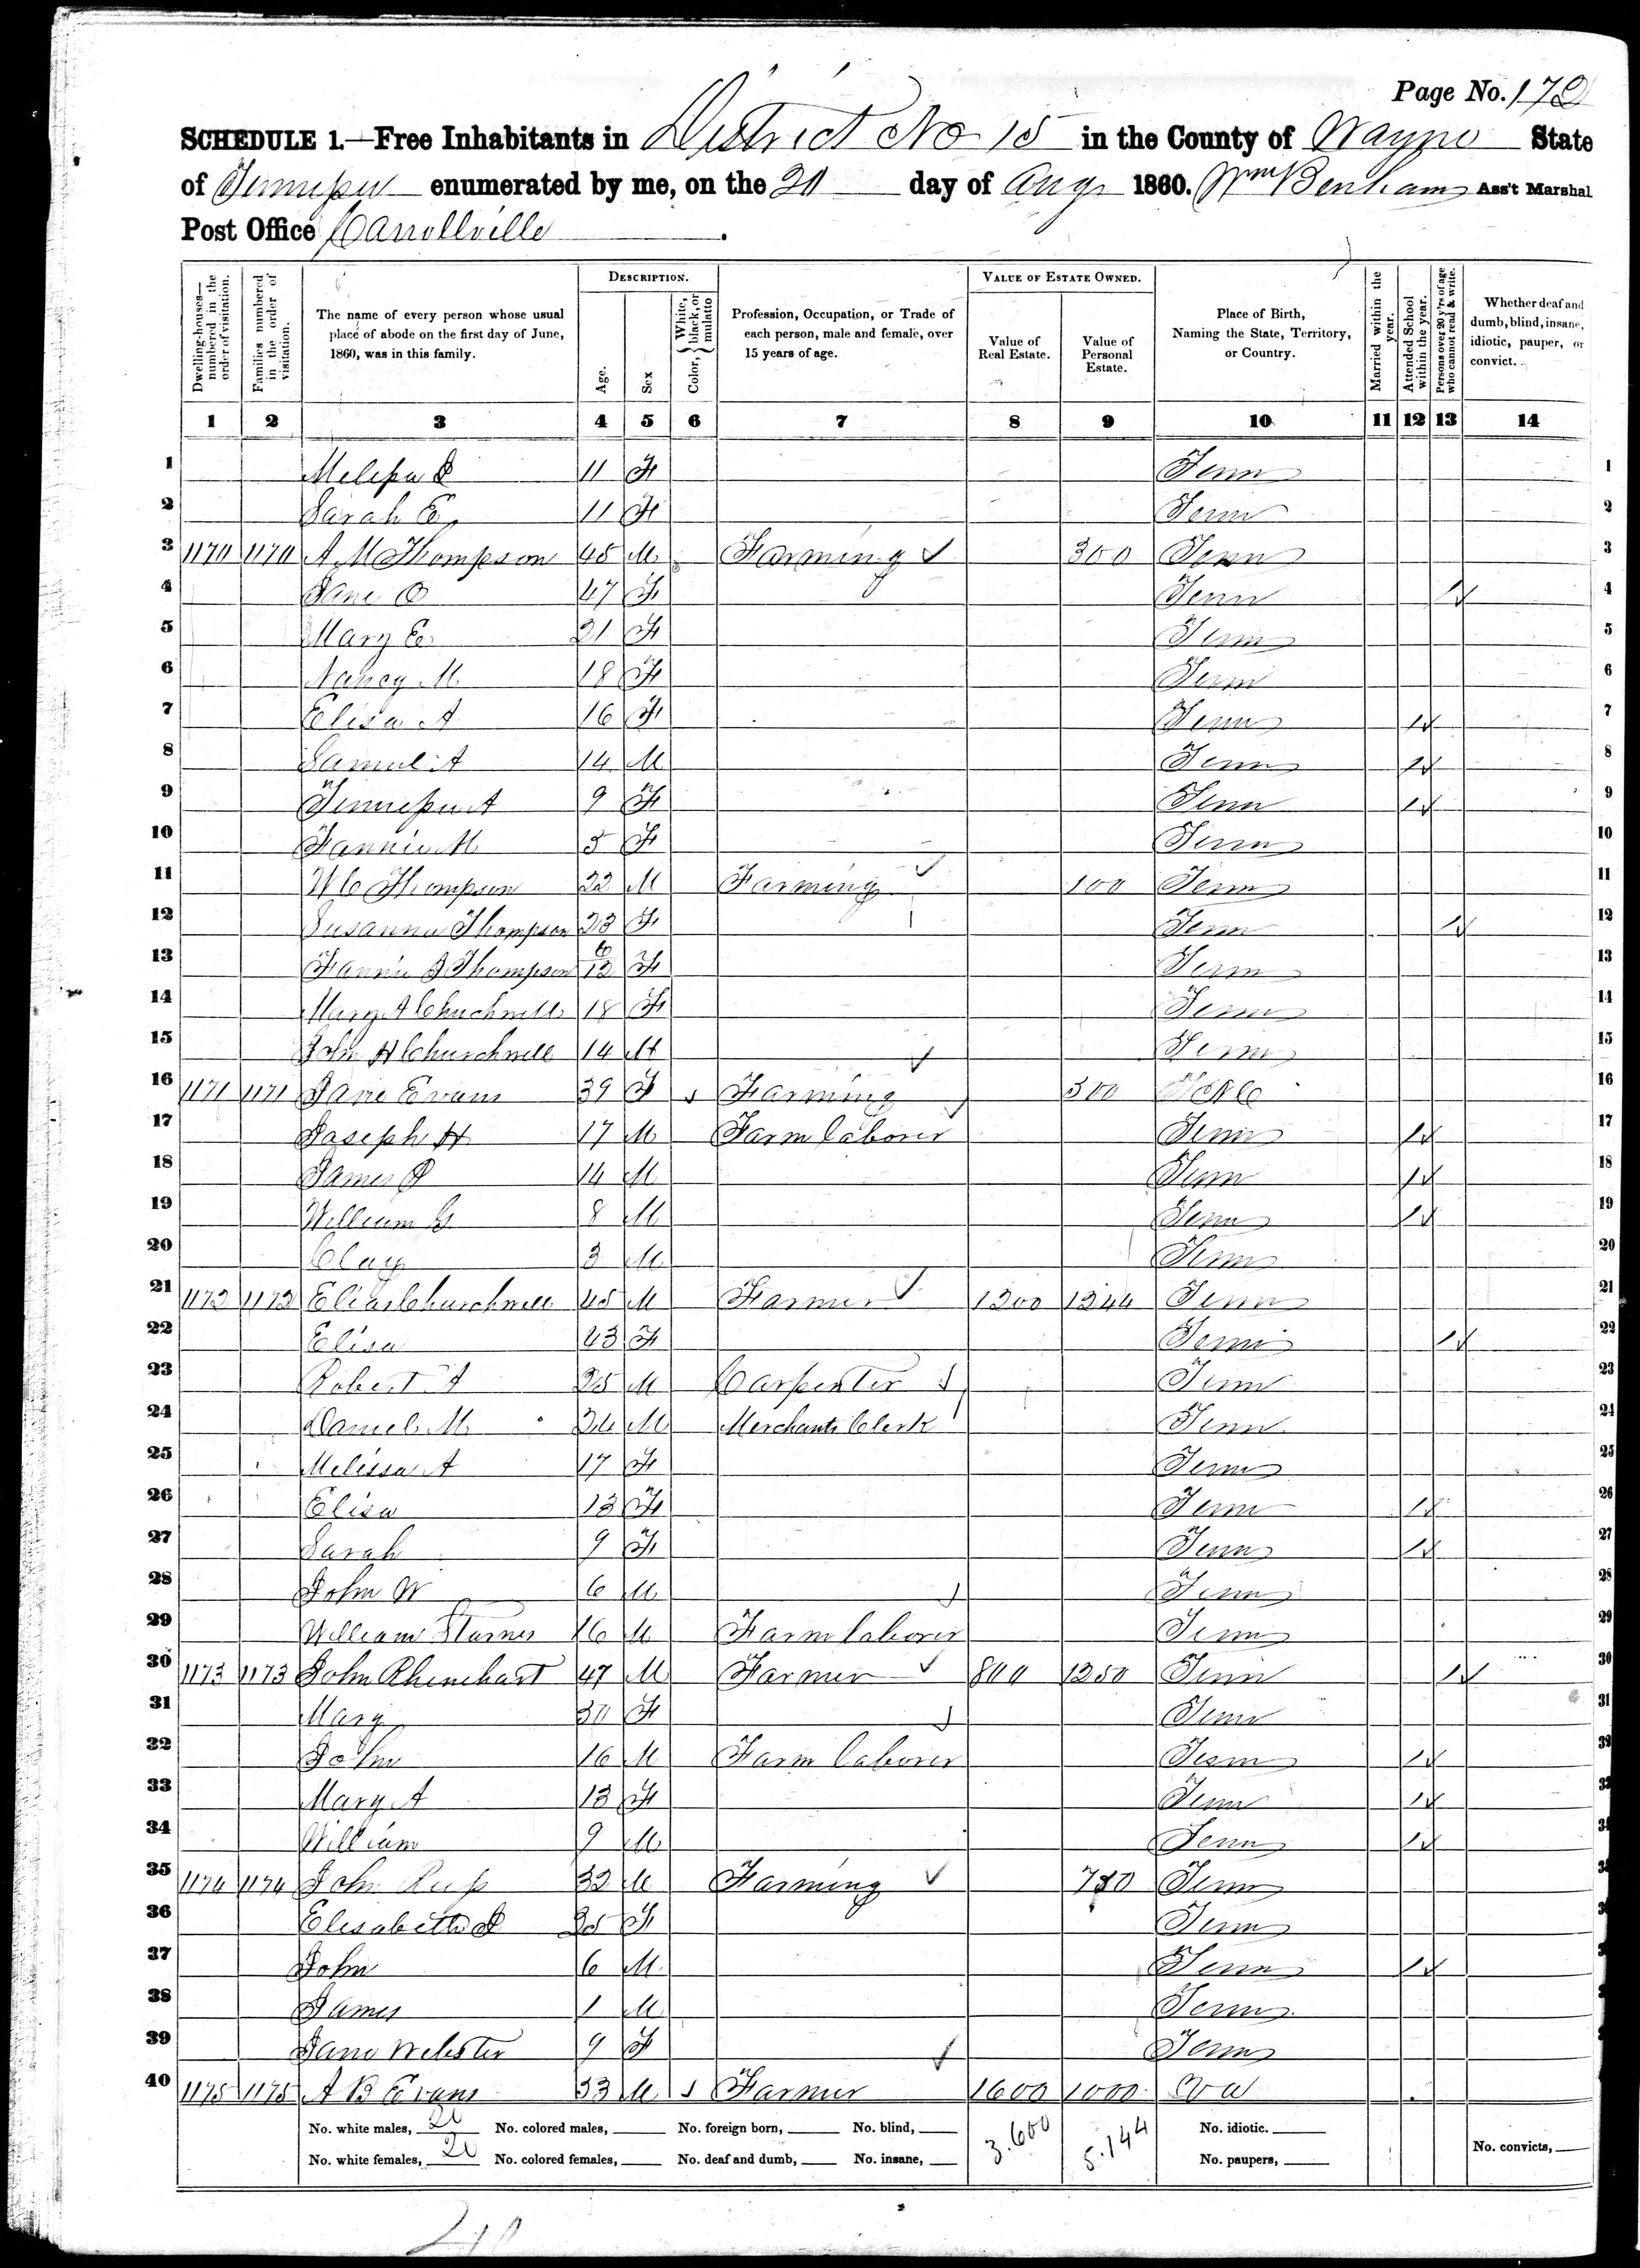 Page No. 172
SCHEDULE 1.—Free Inhabitants in District No 15 in the County of Wayne State
of Tennessee enumerated by me, on the 20 day of Aug 1860. Wm Benham Ass't Marshal
Post Office Carrollville.
Dwelling-houses—numbered in the order of visitation.
Families numbered in the order of visitation.
The name of every person whose usual place of abode on the first day of June, 1860, was in this family.
Description.
Age.
Sex
Color, { White, black, or mulatto
Profession, Occupation, or Trade of each person, male and female, over 15 years of age.
Value of Estate Owned.
Value of Real Estate.
Value of Personal Estate.
Place of Birth, Naming the State, Territory, or Country.
Married within the year.
Attended School within the year.
Persons over 20 y'rs of age who cannot read & write.
Whether deaf and dumb, blind, insane, idiotic, pauper, or convict.
1 2 3 4 5 6 7 8 9 10 11 12 13 14
1 Melissa 11 F Tenn 1
2 Sarah E 11 F Tenn 2
3 1170 1170 A M Thompson 45 M Farming ✓ 300 Tenn 3
4 Jane O 47 F Tenn 1 4
5 Mary E 21 F Tenn 5
6 Nancy M 18 F Tenn 6
7 Elisa A 16 F Tenn 1 7
8 Samuel A 14 M Tenn 1 8
9 Tennessee A 9 F Tenn 1 9
10 Fannie M 5 F Tenn 10
11 W C Thompson 22 M Farming ✓ 100 Tenn 11
12 Susanna Thompson 23 F Tenn 1 12
13 Fannie J Thompson 6/12 F Tenn 13
14 Mary A Churchwell 18 F Tenn 14
15 John H Churchwell 14 M Tenn 15
16 1171 1171 Jane Evans 39 F Farming ✓ 500 N C 16
17 Joseph H 17 M Farm laborer Tenn 1 17
18 James P 14 M Tenn 1 18
19 William G 8 M Tenn 1 19
20 Clay 3 M Tenn 20
21 1172 1172 Elias Churchwell 45 M Farmer ✓ 1200 1244 Tenn 21
22 Elisa 43 F Tenn 1 22
23 Robert A 25 M Carpenter Tenn 23
24 Daniel M 24 M Merchants Clerk Tenn 24
25 Melissa A 17 F Tenn 25
26 Elisa 13 F Tenn 1 26
27 Sarah 9 F Tenn 1 27
28 John W 6 M Tenn 28
29 William Starnes 16 M Farm laborer Tenn 29
30 1173 1173 John Rhinehart 47 M Farmer ✓ 800 1250 Tenn 1 30
31 Mary 30 F Tenn 31
32 John 16 M Farm laborer Tenn 1 32
33 Mary A 13 F Tenn 1 33
34 William 9 M Tenn 1 34
35 1174 1174 John Russ 32 M Farming ✓ 750 Tenn 35
36 Elisabeth 25 F Tenn 36
37 John 6 M Tenn 1
38 James 1 M Tenn
39 Jane Webster 9 F Tenn
40 1175 1175 A B Evans 33 M Farmer ✓ 1600 1000 Va
No. white males, 20 No. colored males, No. foreign born, No. blind, 3.600 5.144 No. idiotic.
No. white females, 20 No. colored females, No. deaf and dumb, No. insane, No. paupers, No. convicts,
40